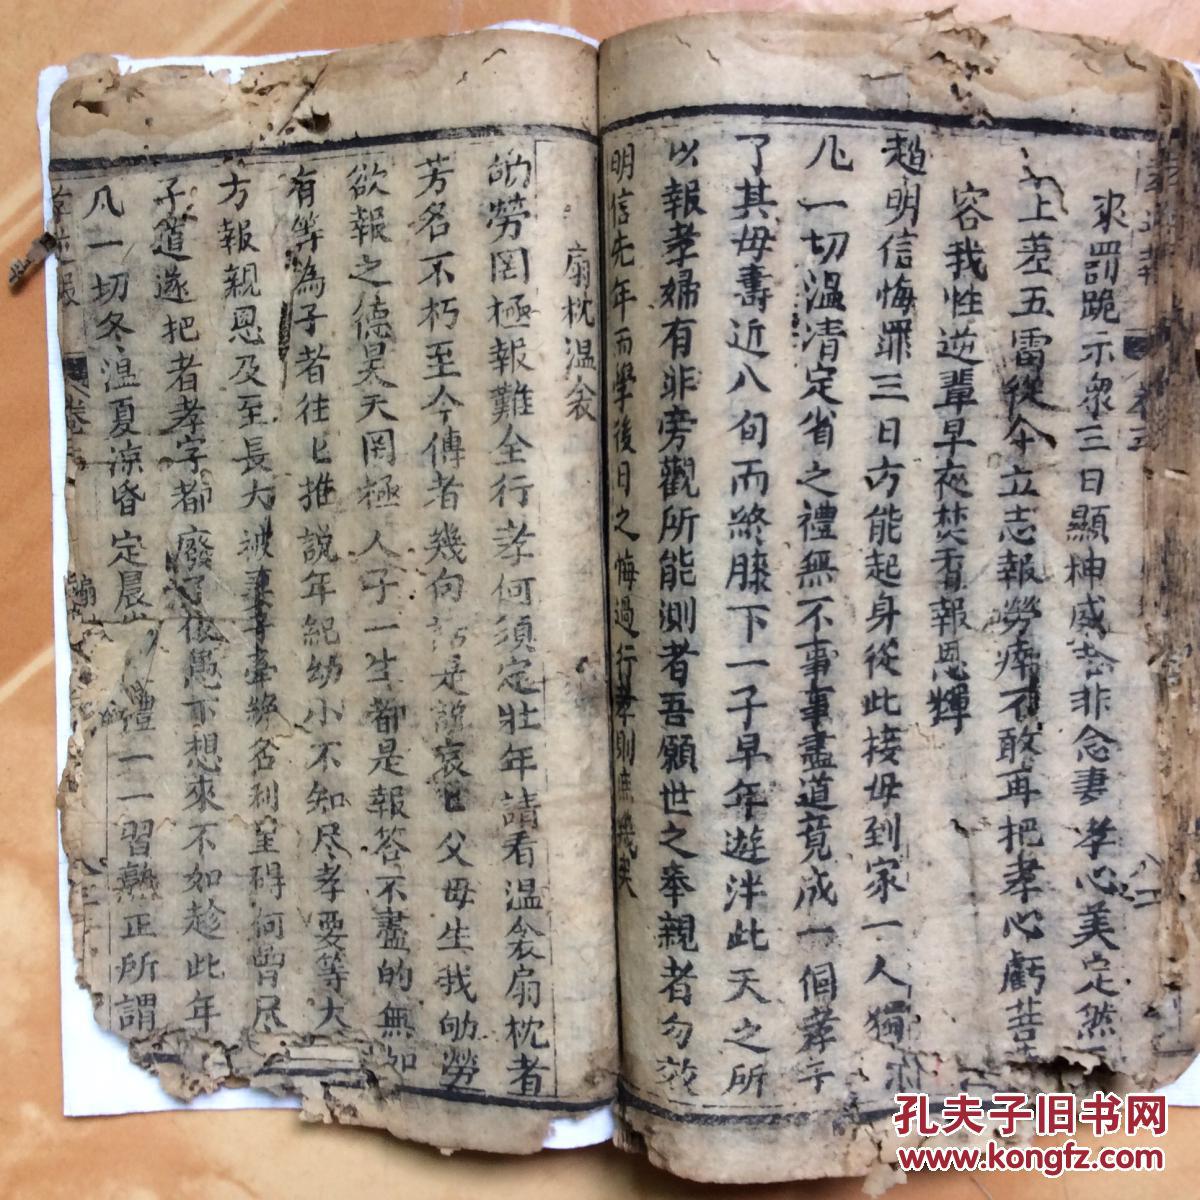 求罰跪示眾三日顯神威若非念妻孝心美定然
上差五雷從今立志報勞瘁不敢再把孝心虧菩
容我性逆輩早夜焚香報恩輝
趙明信悔罪三日方能起身從此接母到家一人獨
凡一切温清定省之禮無不事事盡道竟成一個孝子
了其母壽近八旬而終膝下一子早年遊泮此天之所
以報孝婦有非旁觀所能測者吾願世之奉親者勿效
明信先年而學後日之悔過行孝則庶幾矣
扇枕温衾
劬勞罔極報難全行孝何須定壯年請看温衾扇枕者
芳名不朽至今傳者幾句話是說哀匕父母生我劬勞
欲報之德昊天罔極人子一生都是報答不盡的無如
有等為子者往匕推說年紀幼小不知尽孝要等大
方報親恩及至長大被妻子牽絆名利堂碍何曾尽
子道遂把者孝字都廢了依愚下想來不如趁此年
凡一切冬温夏凉昏定晨
禮一一習熟正所謂
孔夫子旧书网
www.kongfz.com